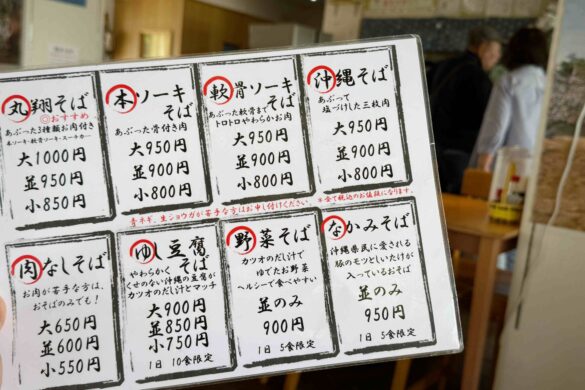 丸翔そば
◎おすすめ
あぶった3種類お肉付き
本ソーキ・軟骨ソーキ・スーチカー
大1000円
並950円
小850円
本ソーキそば
あぶった骨付き肉
大950円
並900円
小800円
軟骨ソーキそば
あぶった軟骨まで
トロトロやわらかお肉
大950円
並900円
小800円
沖縄そば
あぶって
塩づけした三枚肉
大950円
並900円
小800円
青ネギ、生ショウガが苦手な方はお申し付けください
※全て税込のお値段になります。
肉なしそば
お肉が苦手な方は、
おそばのみでも!
大650円
並600円
小550円
ゆし豆腐そば
やわらかく
くせのない沖縄の豆腐が
カツオのだし汁とマッチ
大900円
並850円
小750円
1日 10食限定
野菜そば
カツオのだし汁で
ゆでたお野菜
ヘルシーで食べやすい
並のみ
900円
1日 5食限定
なかみそば
沖縄県民に愛される
豚のモツとしいたけが
入っているおそば
並のみ
950円
1日 5食限定